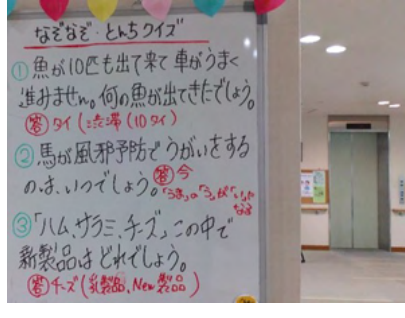 なぞなぞ・とんちクイズ
①魚が10匹も出て来て車がうまく
進みません。何の魚が出てきたでしょう。
答 タイ(渋滞(10タイ)
②馬が風邪予防でうがいをする
のは、いつでしょう。答 今
「うま」の「う」が「い」に
なる
③「ハム、サラミ、チーズ」この中で
新製品はどれでしょう。
答 チーズ(乳製品、New製品)